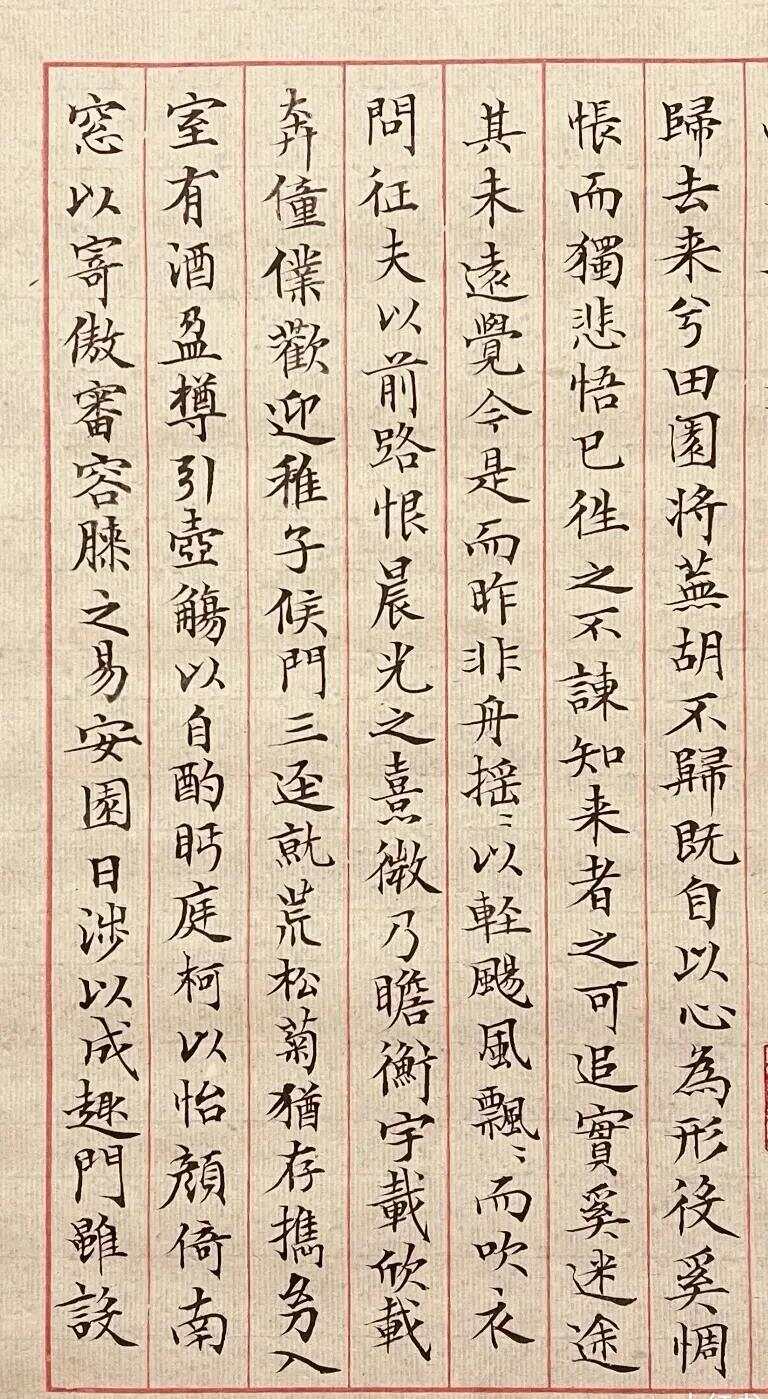 歸去来兮田園将蕪胡不歸既自以心為形役奚惆
悵而獨悲悟已徃之不諫知来者之可追實奚迷途
其未遠覺今是而昨非舟揺〻以輕颺風飄〻而吹衣
問征夫以前路恨晨光之熹微乃瞻衡宇載欣載
奔僮僕歡迎稚子候門三迳就荒松菊猶存攜幼入
室有酒盈樽引壺觴以自酌眄庭柯以怡顔倚南
窓以寄傲審容膝之易安園日涉以成趣門雖設